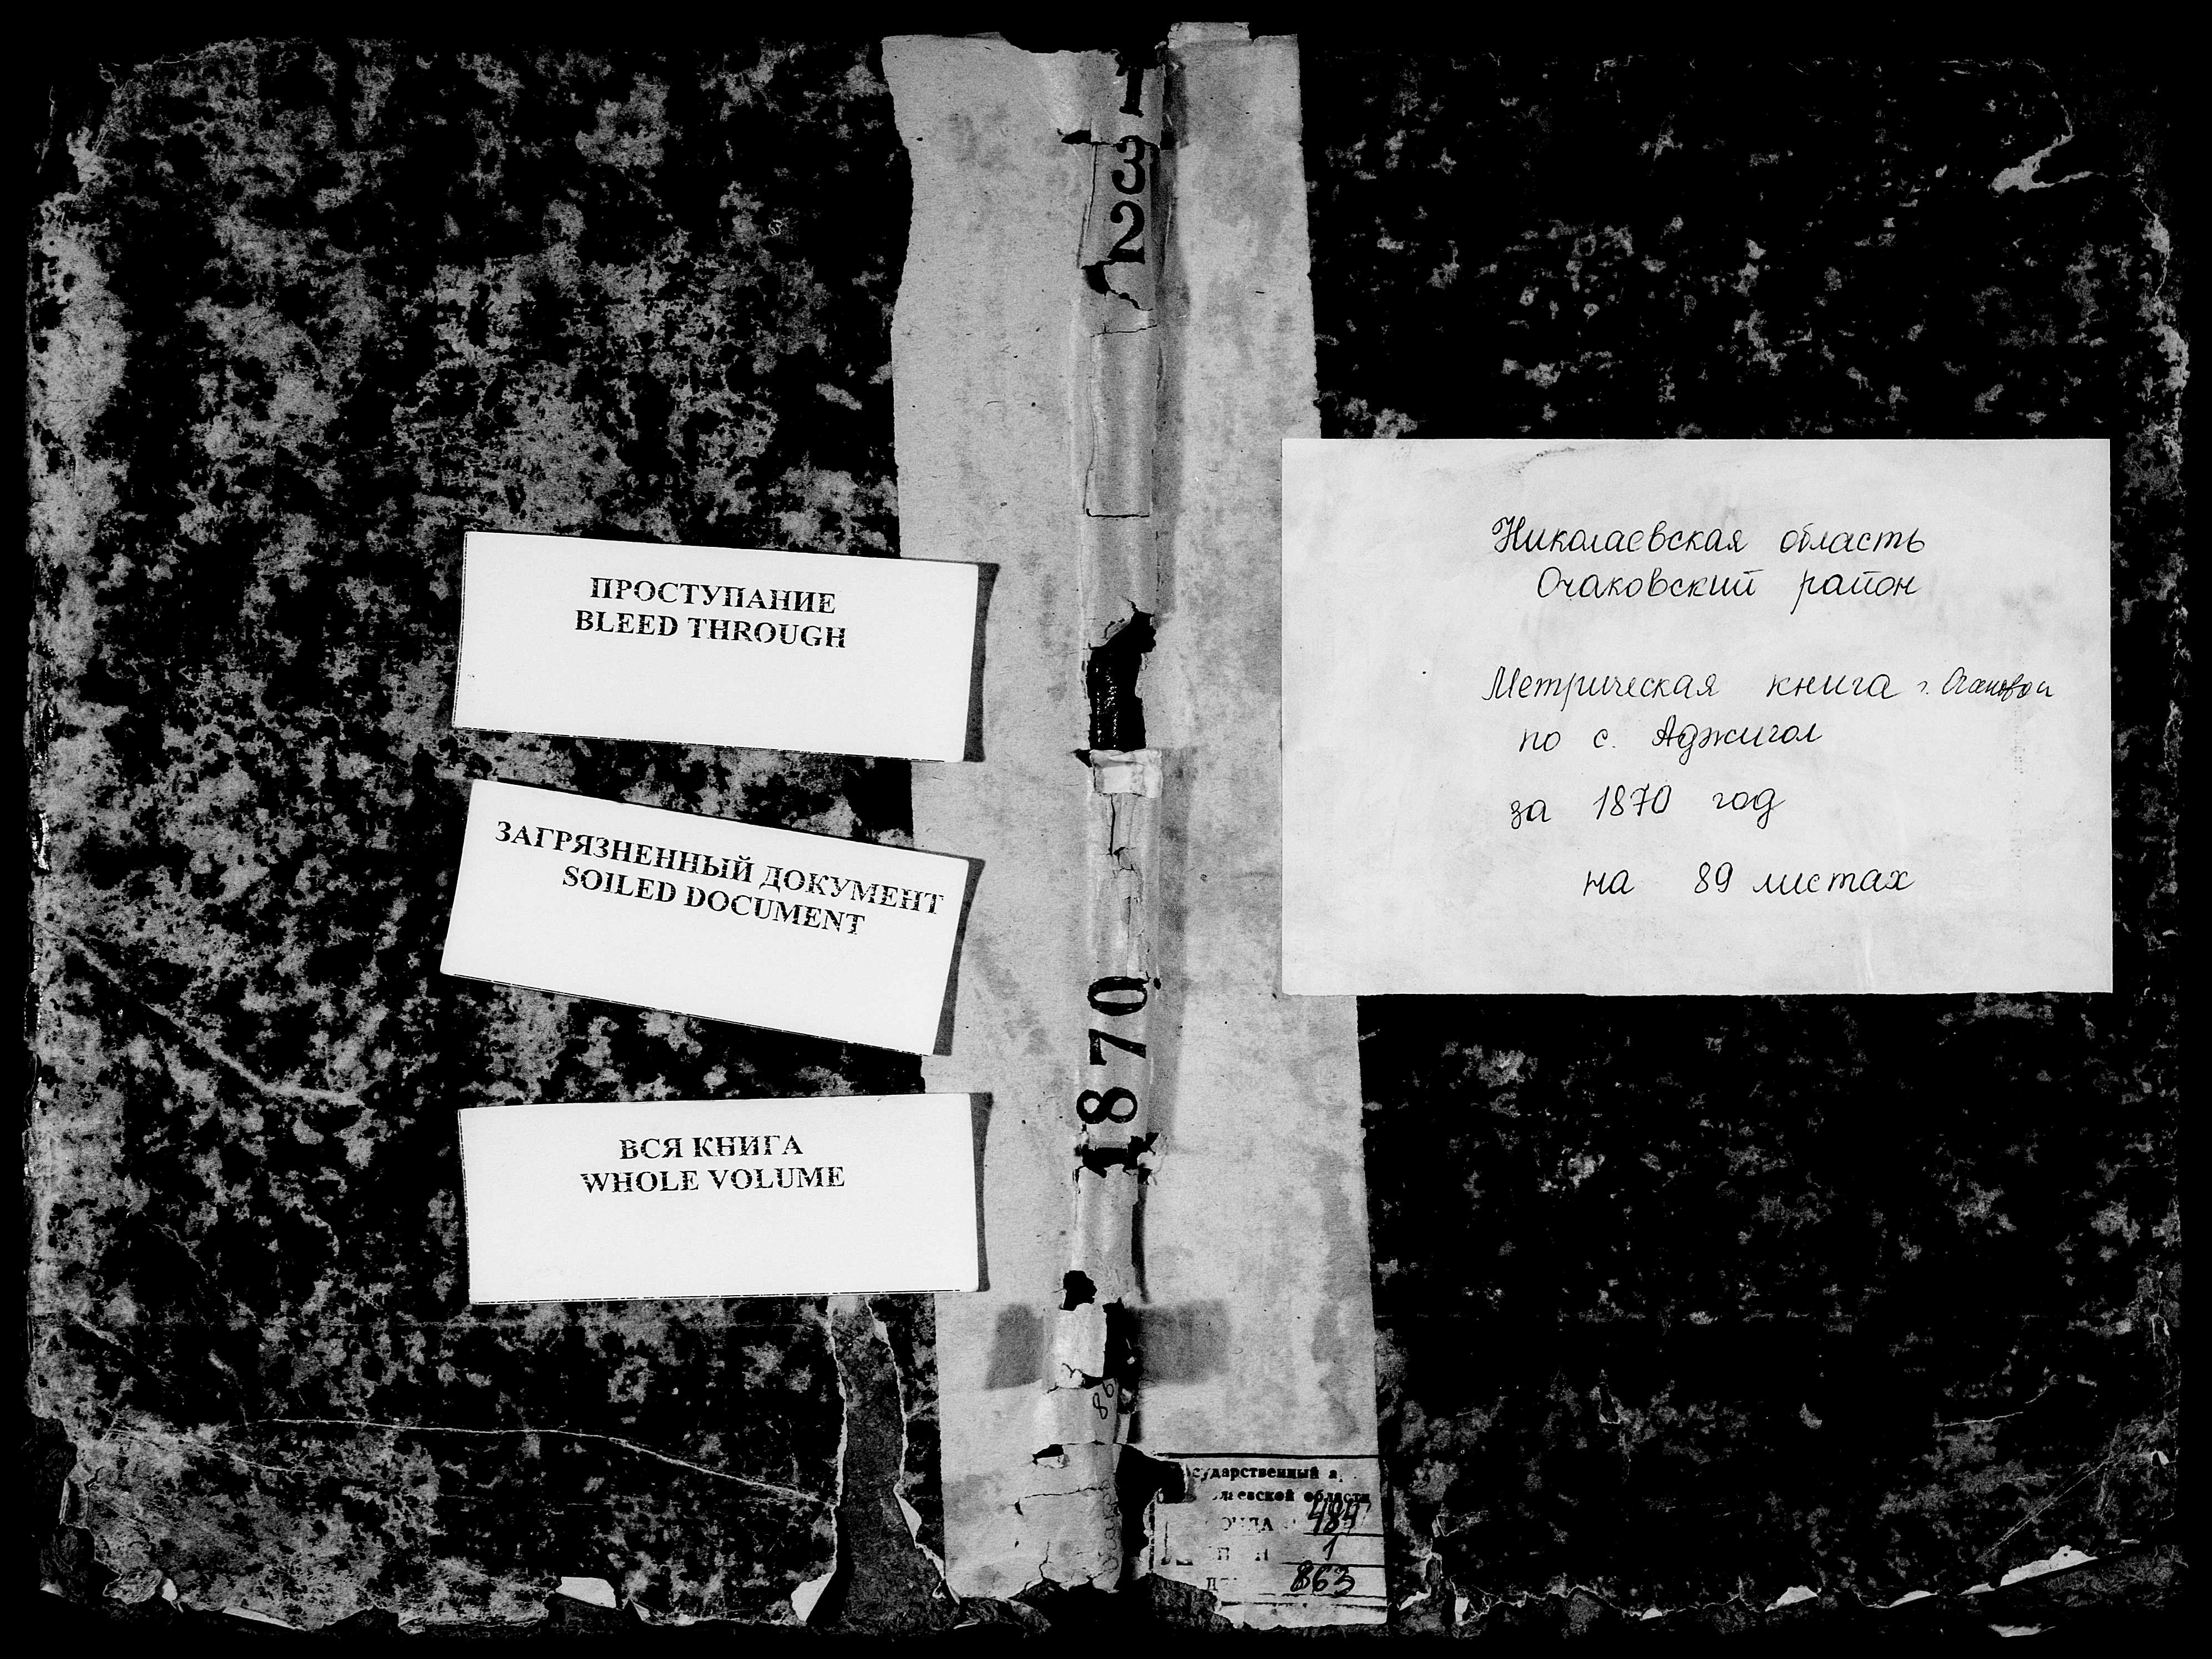 132
1870
ПРОСТУПАНИЕ
BLEED THROUGH
ЗАГРЯЗНЕННЫЙ ДОКУМЕНТ
SOILED DOCUMENT
ВСЯ КНИГА
WHOLE VOLUME
Николаевская область
Очаковский район
Метрическая книга г.
по с. Аджигол
за 1870 год
на 89 листах
сударственный а
лаевской области
ОНДА 484
1
863